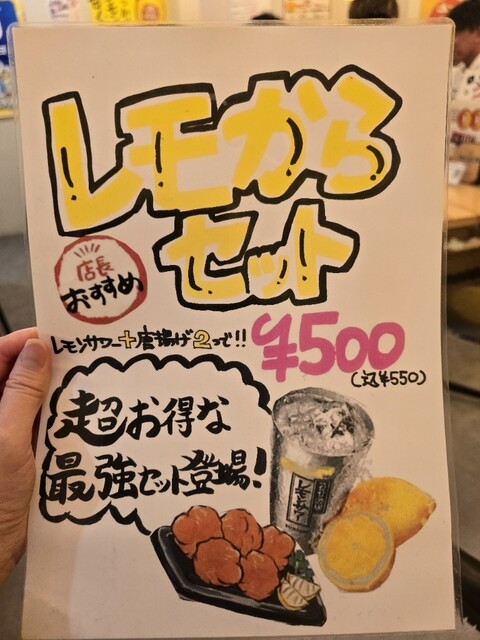 レモから
セット
店長
おすすめ
レモンサワー+唐揚げ2つで!!
¥500
(込¥550)
超お得な
最強セット登場!
レモンサワー